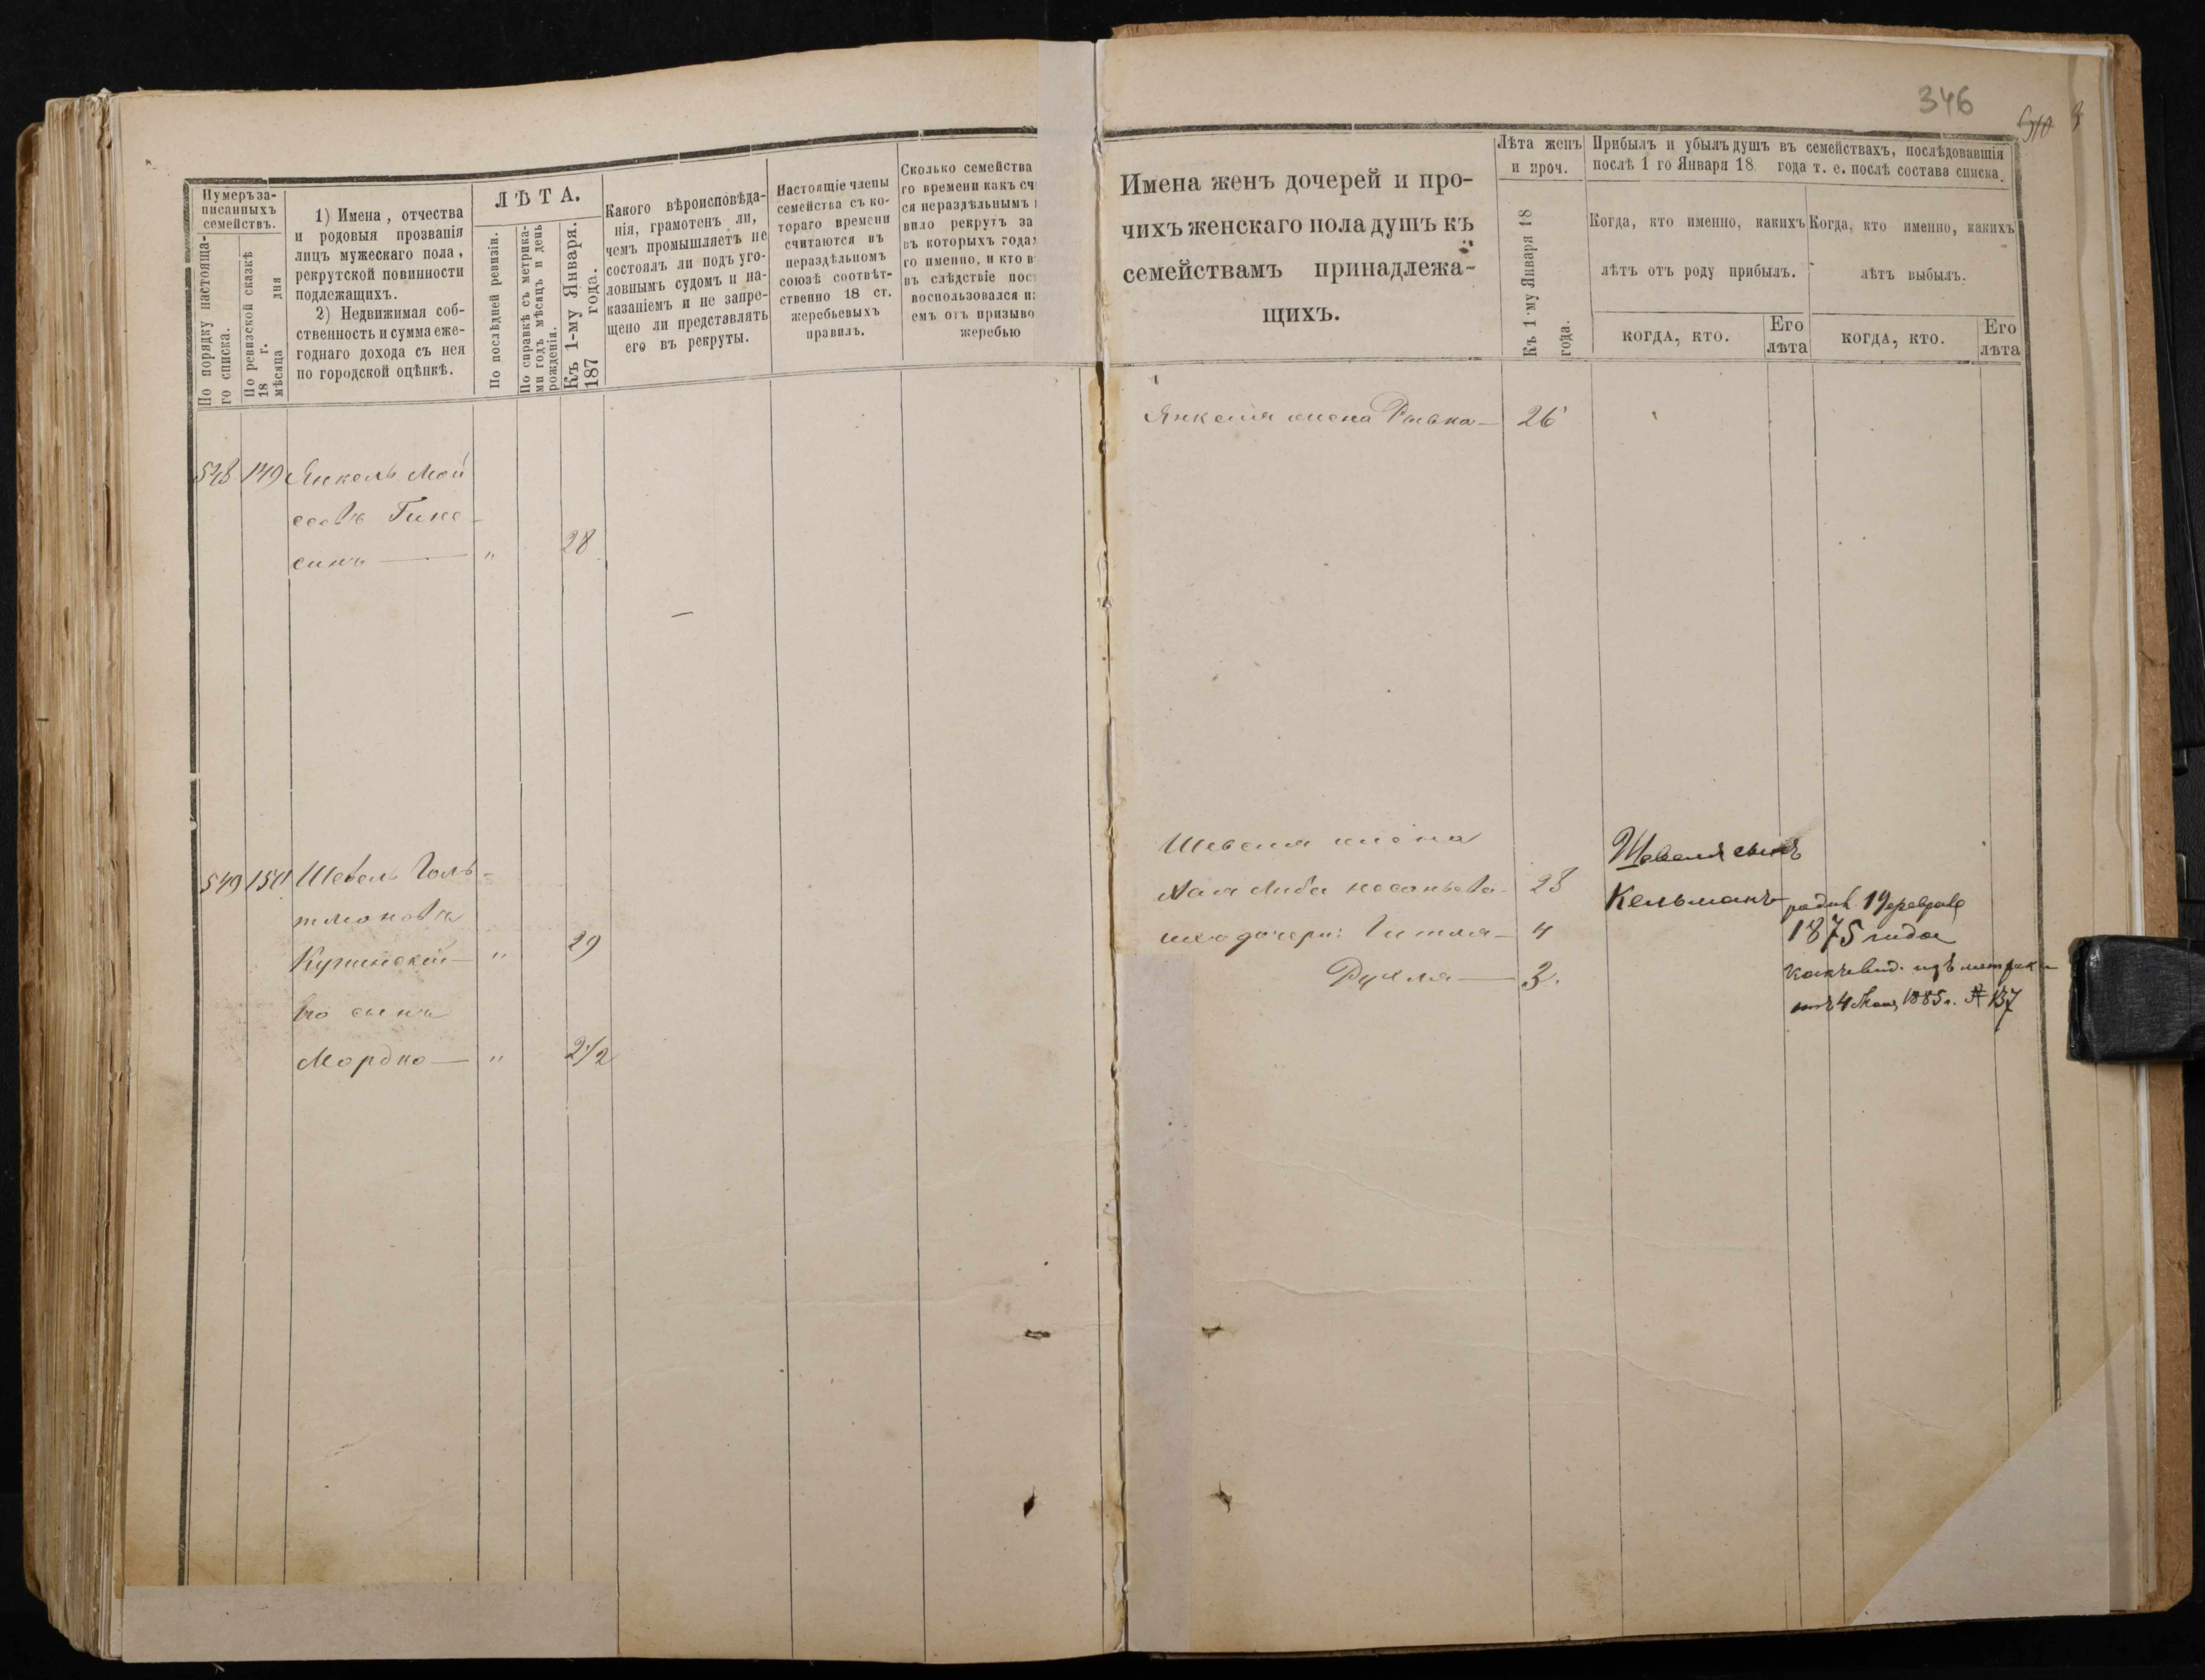 346
Нумеръ за-
писанныхъ
семействъ.
По порядку настояща-
го списка.
По ревизской сказкѣ
18 г.
мѣсяца дня
1) Имена, отчества
и родовыя прозванія
лицъ мужескаго пола,
рекрутской повинности
подлежащихъ.
2) Недвижимая соб-
ственность и сумма еже-
годнаго дохода съ нея
по городской оцѣнкѣ.
ЛѢТА.
По послѣдней ревизіи.
По справкѣ съ метрика-
ми годъ мѣсяцъ и день
рожденія.
Къ 1-му Января.
187 года.
Какого вѣроисповѣда-
нія, грамотенъ ли,
чемъ промышляетъ не
состоялъ ли подъ уго-
ловнымъ судомъ и на-
казаніемъ и не запре-
щено ли представлять
его въ рекруты.
Настоящіе члены
семейства съ ко-
тораго времени
считаются въ
нераздѣльномъ
союзѣ соотвѣт-
ственно 18 ст.
жеребьевыхъ
правилъ.
Сколько семейства
го времени какъ сч
ся нераздѣльнымъ
вило рекрутъ за
въ которыхъ года
го именно, и кто в
въ слѣдствіе пос
воспользовался и
емъ отъ призыво
жеребью
548 149 Янкель Мой
сеевъ Гинс-
 " 28
549 150 Шевель Голь-
 " 29
Его сынъ
Мордко — " 2 1/2
Имена женъ дочерей и про-
чихъ женскаго пола душъ къ
семействамъ принадлежа-
щихъ.
Лѣта женъ
и проч.
Къ 1-му Января 18
года.
Прибылъ и убылъ душъ въ семействахъ, послѣдовавшія
послѣ 1 го Января 18 года т. е. послѣ состава списка.
Когда, кто именно, какихъ
лѣтъ отъ роду прибылъ.
Когда, кто именно, какихъ
лѣтъ выбылъ.
КОГДА, КТО.
Его
лѣта
КОГДА, КТО.
Его
лѣта
Янкеля жена Рывка — 26
Шевеля жена
Хая Либа 28
ихъ дочери: Гитля — 4
Рухля — 3.
Шевеля сынъ
Кельманъ
1875 года
1885 г. № 137